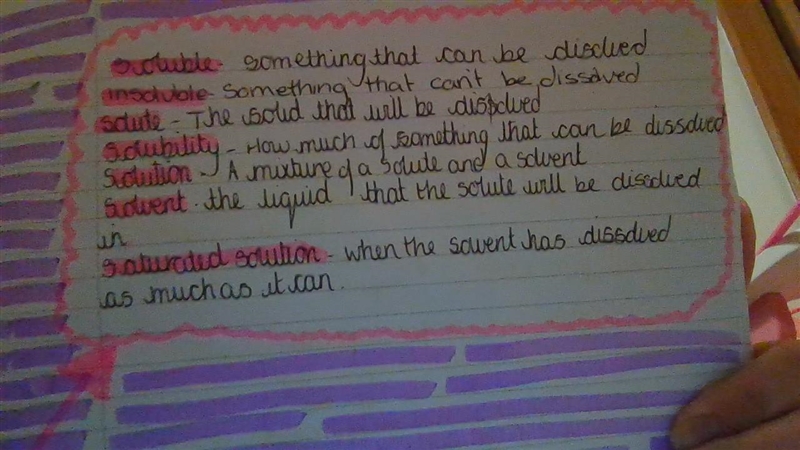 soluble - something that can be disolved
insoluble - something that can't be dissolved
solute - The solid that will be dissolved
solubility - How much of something that can be dissolved
solution - A mixture of a solute and a solvent
solvent - the liquid that the solute will be dissolved
in
saturated solution - when the solvent has dissolved
as much as it can.